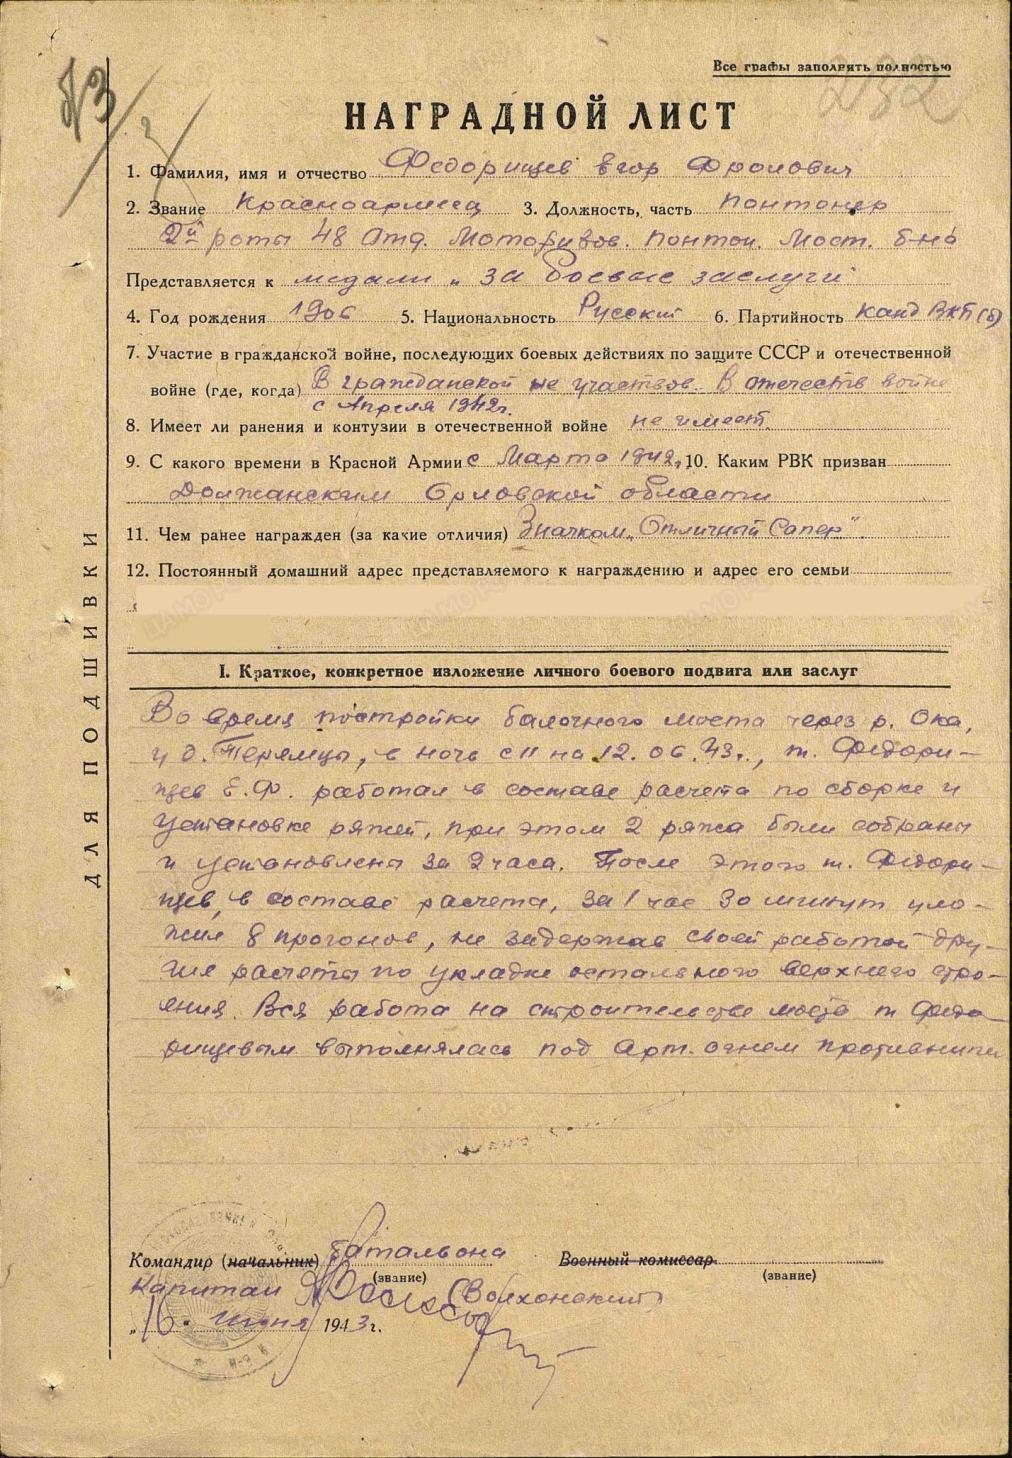 Все графы заполнять полностью
НАГРАДНОЙ ЛИСТ
1. Фамилия, имя и отчество Федорищев Егор Фролович
2. Звание Красноармеец 3. Должность, часть понтонер
2й роты 48 Отд. Моторизов. Понтон. Мост. б-на
Представляется к медали „За боевые заслуги"
4. Год рождения 1906 5. Национальность Русский 6. Партийность канд ВКП(б)
7. Участие в гражданской войне, последующих боевых действиях по защите СССР и отечественной
войне (где, когда) В гражданской не участвов. В отечеств войне
с Апреля 1942г.
8. Имеет ли ранения и контузии в отечественной войне не имеет
9. С какого времени в Красной Армии с Марта 1942, 10. Каким РВК призван
Должанским Орловской области
11. Чем ранее награжден (за какие отличия) Значком „Отличный Сапер".
12. Постоянный домашний адрес представляемого к награждению и адрес его семьи
ДЛЯ ПОДШИВКИ
I. Краткое, конкретное изложение личного боевого подвига или заслуг
Во время постройки балочного моста через р. Ока,
у д. Перямцы, в ночь с 11 на 12.06.43г., т. Федори-
щев Е.Ф. работал в составе расчета по сборке и
установке ряжей, при этом 2 ряжа были собраны
и установлены за 2 часа. После этого т. Федори-
щев, в составе расчета, за 1 час 30 минут уло-
жил 8 прогонов, не задержав своей работой дру-
гие расчеты по укладке остального верхнего стро-
ения. Вся работа на строительстве моста т Федо-
рищевым выполнялась под арт. огнем противника
Командир (начальник) батальона Военный комиссар
(звание) (звание)
Капитан (Волхонский)
„16" июня 1943 г.